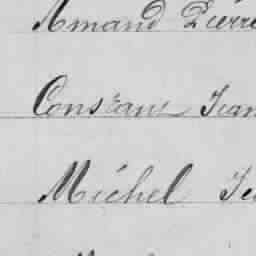 Amand Pierre
Constant Jean
Michel Je